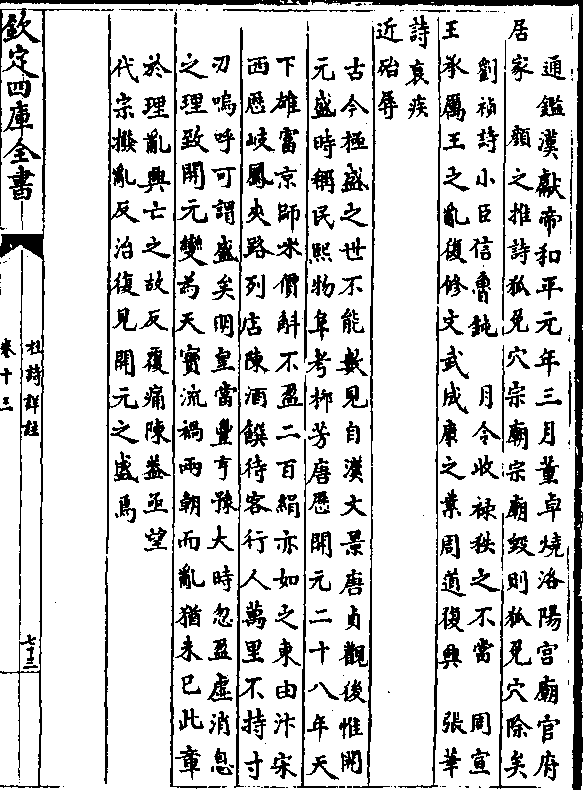 通鑑漢獻帝和平元年三月董卓燒洛陽宮廟官府
居家　顏之推詩狐兎穴宗廟宗廟毀則狐兎穴除矣
劉禎詩小臣信魯鈍　月令收祿秩之不當　周宣
王承厲王之亂復修文武成康之業周道復興　張華
詩哀疾
近殆辱
古今極盛之世不能數見自漢文景唐貞觀後惟開
元盛時稱民熙物阜考柳芳唐歷開元二十八年天
下雄富京師米價斛不盈二百絹亦如之東由汴宋
西歷岐鳳夾路列店陳酒饌待客行人萬里不持寸
刃嗚呼可謂盛矣明皇當豐亨豫大時忽盈虛消息
之理致開元變為天寶流禍兩朝而亂猶未已此章
於理亂興亡之故反覆痛陳蓋亟望
代宗撥亂反治復見開元之盛焉
欽定四庫全書
杜詩詳註
卷十三
七十三